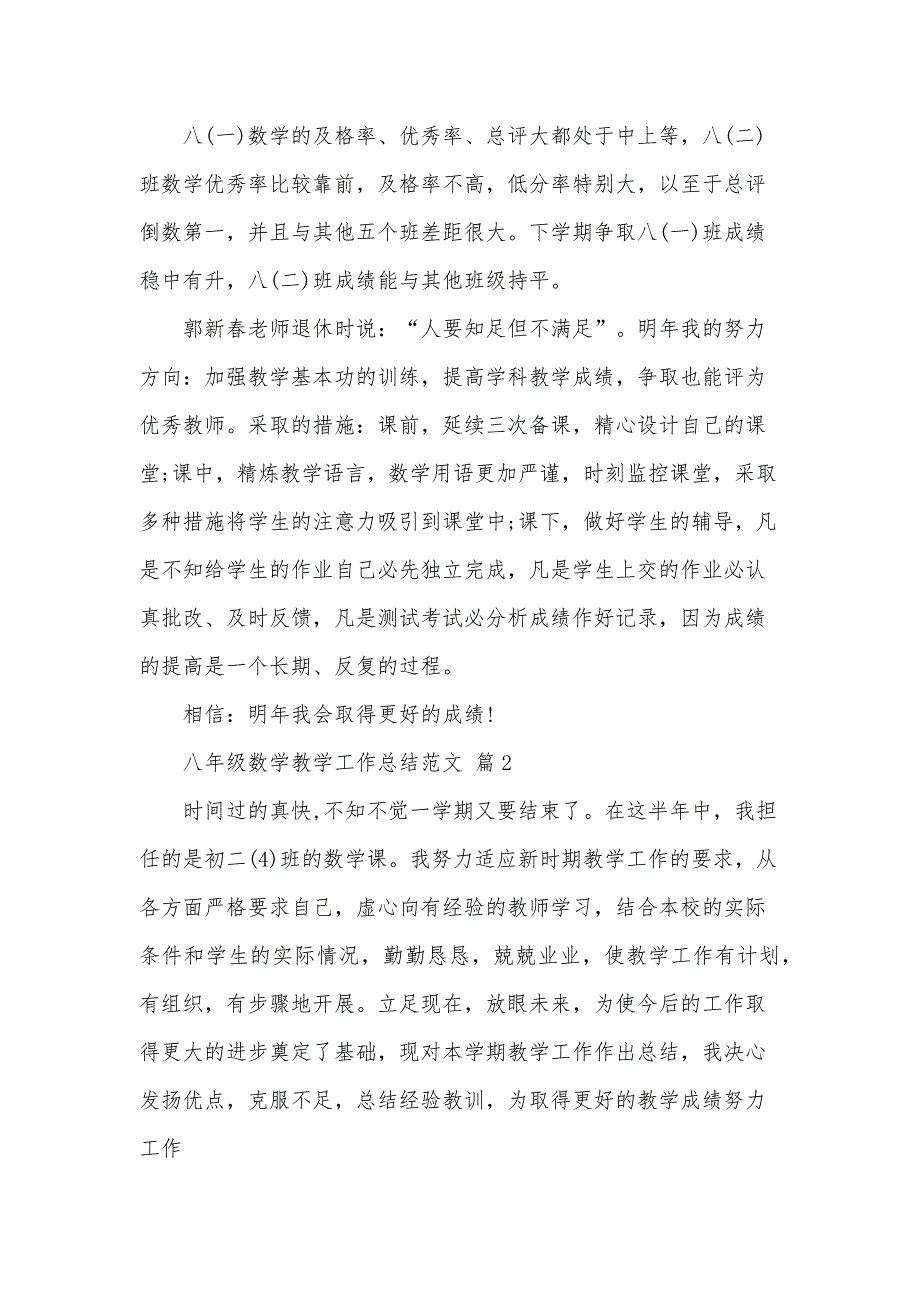 八(一)数学的及格率、优秀率、总评大都处于中上等，八(二)
班数学优秀率比较靠前，及格率不高，低分率特别大，以至于总评
倒数第一，并且与其他五个班差距很大。下学期争取八(一)班成绩
稳中有升，八(二)班成绩能与其他班级持平。
郭新春老师退休时说：“人要知足但不满足”。明年我的努力
方向：加强教学基本功的训练，提高学科教学成绩，争取也能评为
优秀教师。采取的措施：课前，延续三次备课，精心设计自己的课
堂;课中，精炼教学语言，数学用语更加严谨，时刻监控课堂，采取
多种措施将学生的注意力吸引到课堂中;课下，做好学生的辅导，凡
是不知给学生的作业自己必先独立完成，凡是学生上交的作业必认
真批改、及时反馈，凡是测试考试必分析成绩作好记录，因为成绩
的提高是一个长期、反复的过程。
相信：明年我会取得更好的成绩!
八年级数学教学工作总结范文 篇2
时间过的真快,不知不觉一学期又要结束了。在这半年中，我担
任的是初二(4)班的数学课。我努力适应新时期教学工作的要求，从
各方面严格要求自己，虚心向有经验的教师学习，结合本校的实际
条件和学生的实际情况，勤勤恳恳，兢兢业业，使教学工作有计划，
有组织，有步骤地开展。立足现在，放眼未来，为使今后的工作取
得更大的进步奠定了基础，现对本学期教学工作作出总结，我决心
发扬优点，克服不足，总结经验教训，为取得更好的教学成绩努力
工作